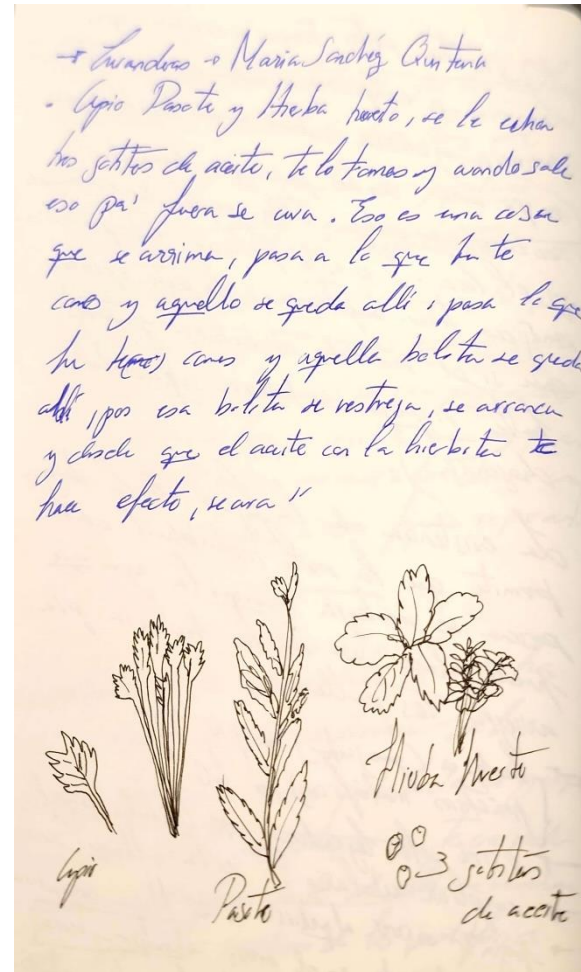 → Curanderas → Maria Sanchéz Quintana
• Apio Pasote y Hierba huerto, se le echan
tres gotitas de aceite, te lo tomas y cuando sale
eso pa' fuera se cura. Eso es una cosa
que se arrima, pasa a lo que tu te
comes y aquello se queda allí, pasa lo que
tu comes y aquella bolita se queda
allí, pos esa bolita se restrega, se arranca
y desde que el aceite con la hierbita te
hace efecto, se cura"
Apio
Pasote
Hierba Huerto
3 gotitas
de aceite